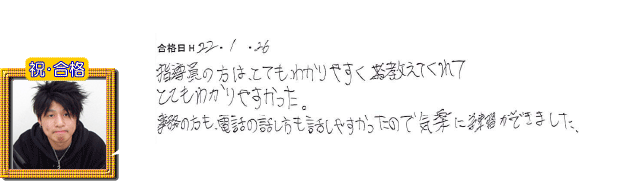 祝・合格
合格日 H 22・1・26
指導員の方は、とてもわかりやすく教えてくれて
とてもわかりやすかった。
事務の方も、電話の話し方も話しやすかったので気楽に練習ができました。